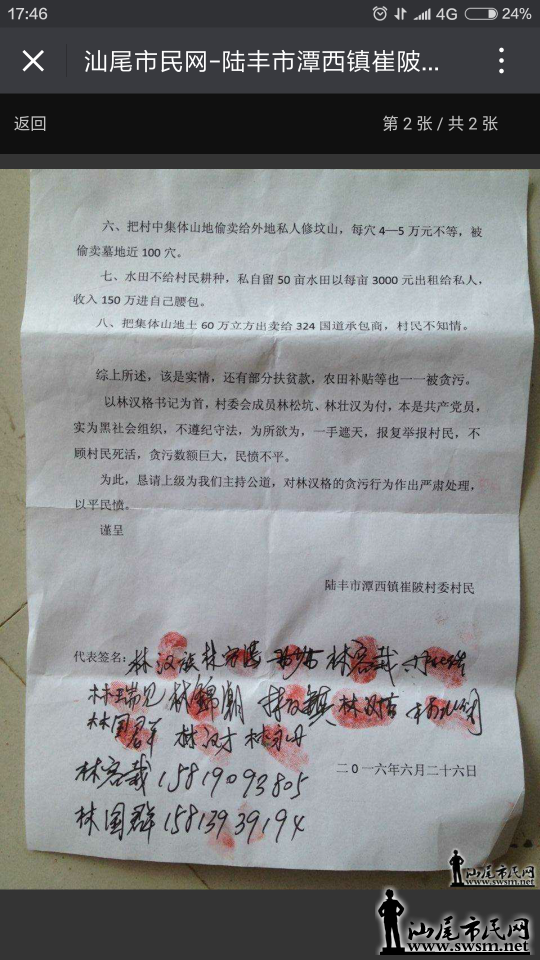 17:46
4G 24%
汕尾市民网-陆丰市潭西镇崔陂...
返回
第 2 张 / 共 2 张
六、把村中集体山地偷卖给外地私人修坟山，每穴 4—5 万元不等，被
偷卖墓地近 100 穴。
七、水田不给村民耕种，私自留 50 亩水田以每亩 3000 元出租给私人，
收入 150 万进自己腰包。
八、把集体山地土 60 万立方出卖给 324 国道承包商，村民不知情。
综上所述，该是实情，还有部分扶贫款，农田补贴等也一一被贪污。
以林汉格书记为首，村委会成员林松坑、林壮汉为付，本是共产党员，
实为黑社会组织，不遵纪守法，为所欲为，一手遮天，报复举报村民，不
顾村民死活，贪污数额巨大，民愤不平。
为此，恳请上级为我们主持公道，对林汉格的贪污行为作出严肃处理，
以平民愤。
谨呈
陆丰市潭西镇崔陂村委村民
代表签名：林汉族 林容栽
林瑞见 林錦潮 林汉镇 林汉吉
林国群 林汉才
二0一六年六月二十六日
林容栽 15819093805
林国群 15813939194
汕尾市民网
www.swsm.net
汕尾市民网
www.swsm.net